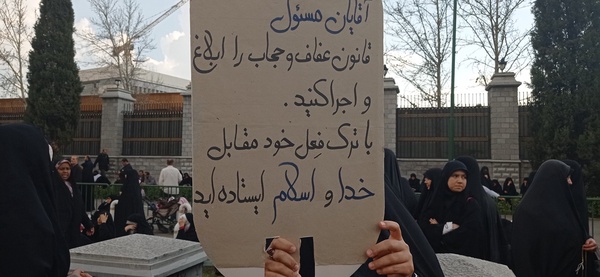 آقایان مسئول
قانون عفاف و حجاب را ابلاغ
و اجرا کنید.
با ترک فعل خود مقابل
خدا و اسلام ایستاده اید